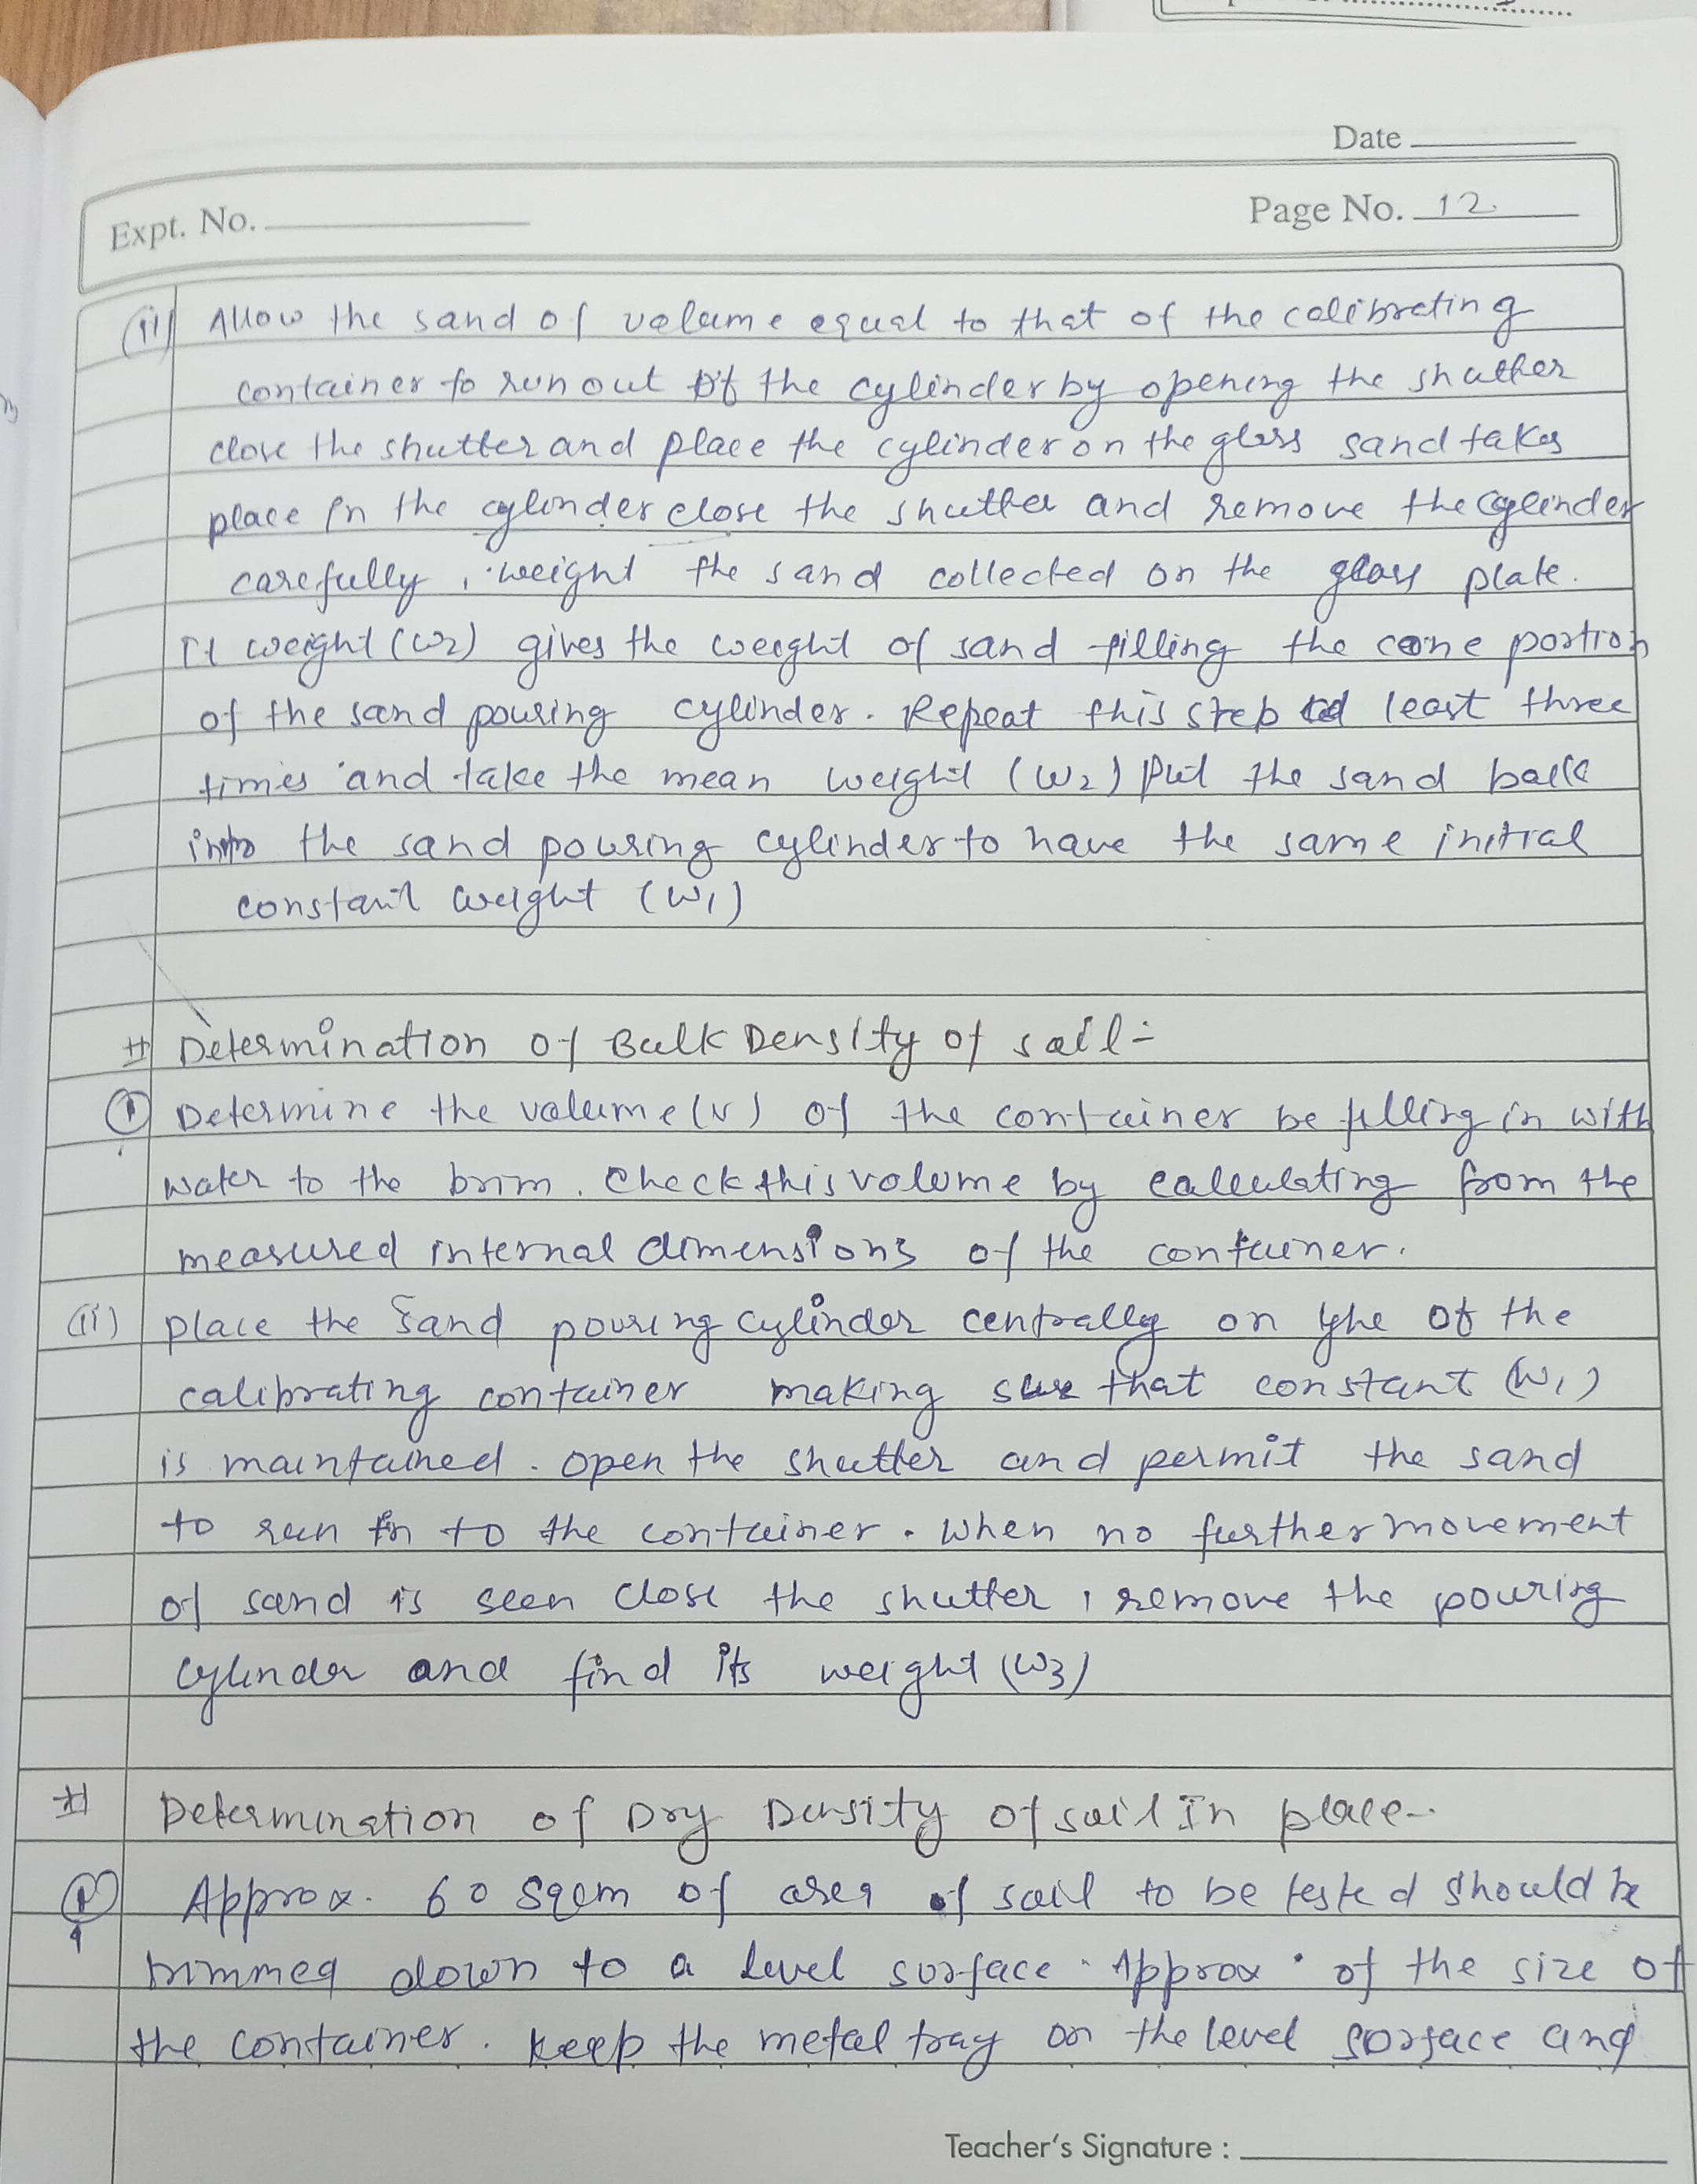 Date
Expt. No.
Page No. 12.
(ii) Allow the sand of volume equal to that of the calibrating
container to run out of the cylinder by opening the shutter
close the shutter and place the cylinder on the glass sand takes
place in the cylinder close the shutter and remove the cylinder
carefully, weight the sand collected on the glass plate.
It weight (w2) gives the weight of sand filling the cone portion
of the sand pouring cylinder. Repeat this step at least three
times and take the mean weight (W2) put the sand back
into the sand pouring cylinder to have the same initial
constant weight (W1)
# Determination of Bulk Density of soil :-
(i) Determine the volume (v) of the container be filling in with
water to the brim. Check this volume by calculating from the
measured internal dimensions of the container.
(ii) place the Sand pouring cylinder centrally on yhe of the
calibrating container making sure that constant (W1)
is maintained. open the shutter and permit the sand
to run in to the container. when no further movement
of sand is seen close the shutter, remove the pouring
cylinder and find its weight (W3)
# Determination of Dry Density of soil In place-.
(i) Approx. 60 sqcm of area of soil to be tested should be
trimmed down to a level surface. Approx. of the size of
the container. keep the metal tray on the level sorface and
Teacher's Signature :